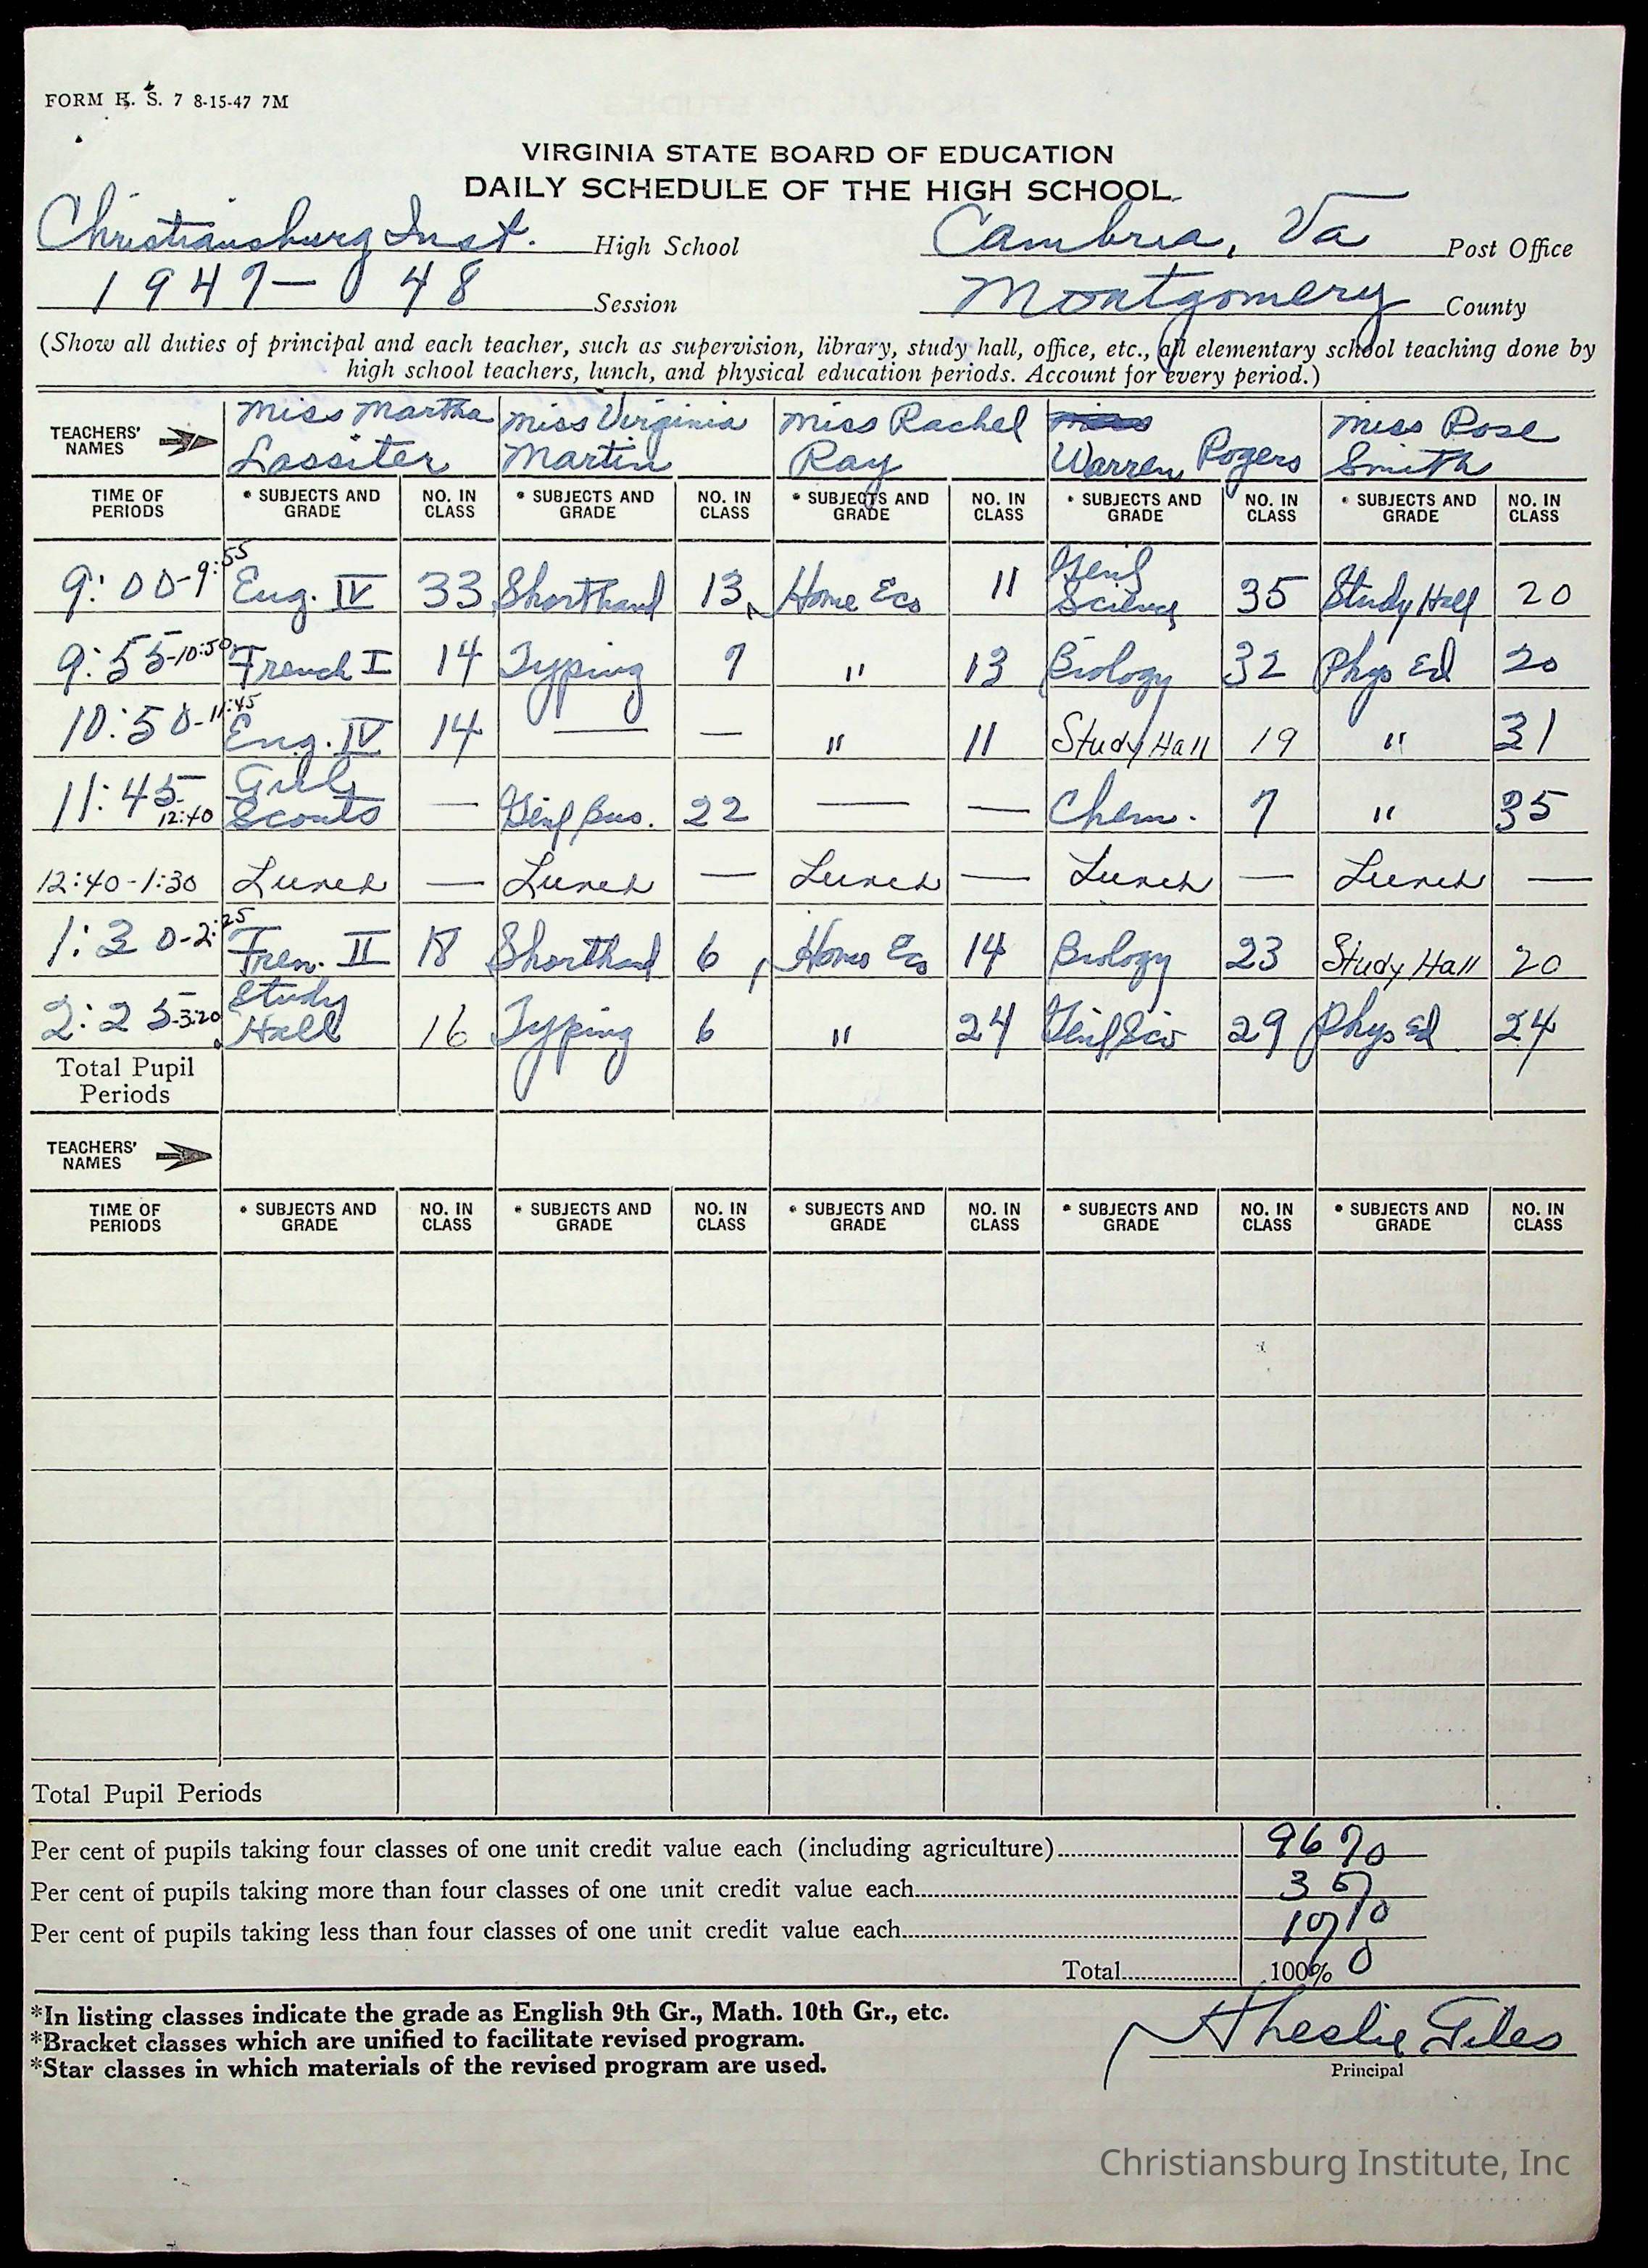 FORM H. S. 7 8-15-47 7M
VIRGINIA STATE BOARD OF EDUCATION
DAILY SCHEDULE OF THE HIGH SCHOOL
Christiansburg Inst. High School Cambria, Va Post Office
1947-48 Session Montgomery County
(Show all duties of principal and each teacher, such as supervision, library, study hall, office, etc., all elementary school teaching done by
high school teachers, lunch, and physical education periods. Account for every period.)
TEACHERS' NAMES Miss Martha Lassiter Miss Virginia Martin Miss Rachel Ray Warren Rogers Miss Rose Smith
TIME OF PERIODS * SUBJECTS AND GRADE NO. IN CLASS * SUBJECTS AND GRADE NO. IN CLASS * SUBJECTS AND GRADE NO. IN CLASS * SUBJECTS AND GRADE NO. IN CLASS * SUBJECTS AND GRADE NO. IN CLASS
9:00-9:55 Eng. IV 33 Shorthand 13 Home Eco 11 Gen'l Science 35 Study Hall 20
9:55-10:50 French I 14 Typing 7 " 13 Biology 32 Phys Ed 20
10:50-11:45 Eng. IV 14 — — " 11 Study Hall 19 " 31
11:45 12:40 Girl Scouts — Gen'l Bus. 22 — — Chem. 7 " 35
12:40-1:30 Lunch — Lunch — Lunch — Lunch — Lunch —
1:30-2:25 Fren. II 18 Shorthand 6 Home Eco 14 Biology 23 Study Hall 20
2:25-3:20 Study Hall 16 Typing 6 " 24 Gen'l Sci 29 Phys Ed 24
Total Pupil Periods
TEACHERS' NAMES
TIME OF PERIODS * SUBJECTS AND GRADE NO. IN CLASS * SUBJECTS AND GRADE NO. IN CLASS * SUBJECTS AND GRADE NO. IN CLASS * SUBJECTS AND GRADE NO. IN CLASS * SUBJECTS AND GRADE NO. IN CLASS
Total Pupil Periods
Per cent of pupils taking four classes of one unit credit value each (including agriculture) 96%
Per cent of pupils taking more than four classes of one unit credit value each 3%
Per cent of pupils taking less than four classes of one unit credit value each 1%
Total 100%
*In listing classes indicate the grade as English 9th Gr., Math. 10th Gr., etc.
*Bracket classes which are unified to facilitate revised program.
*Star classes in which materials of the revised program are used.
Giles
Principal
Christiansburg Institute, Inc